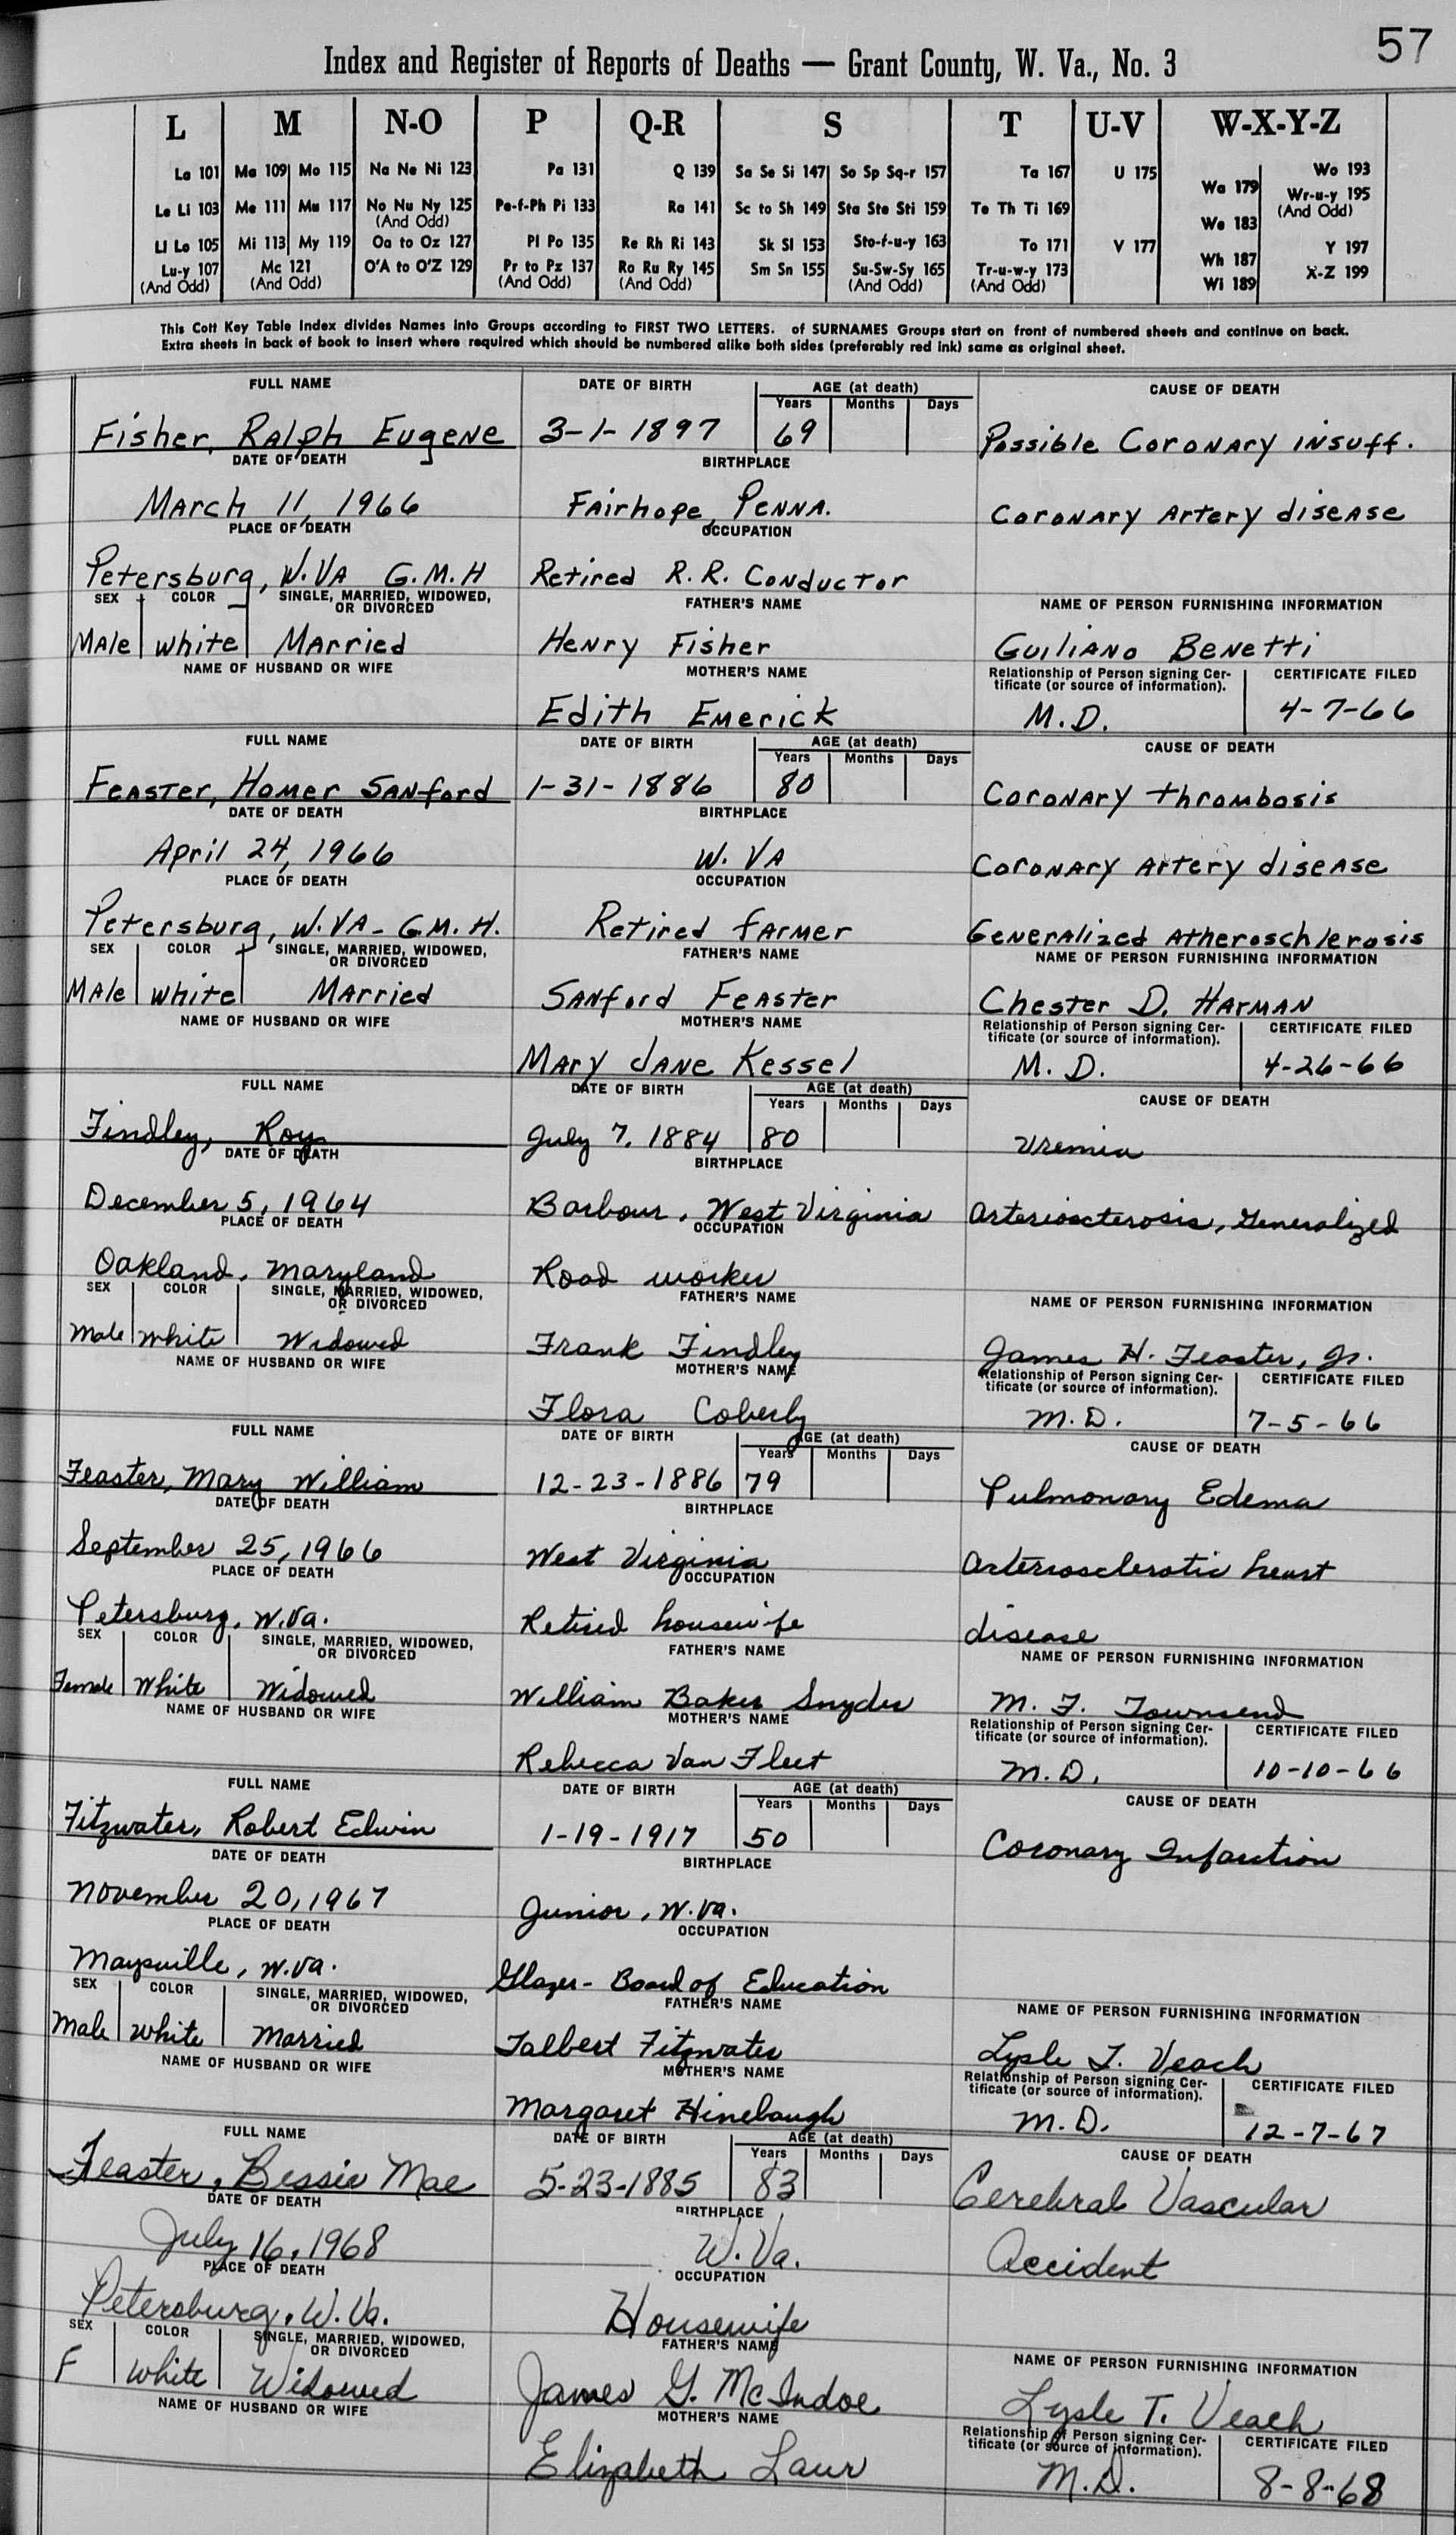 57
Index and Register of Reports of Deaths — Grant County, W. Va., No. 3
L M N-O P Q-R S T U-V W-X-Y-Z
La 101 Ma 109 Mo 115 Na Ne Ni 123 Pa 131 Q 139 Sa Se Si 147 So Sp Sq-r 157 Ta 167 U 175 Wa 179 Wo 193
Le Li 103 Me 111 Mu 117 No Nu Ny 125 (And Odd) Pe-f-Ph Pi 133 Ra 141 Sc to Sh 149 Sta Ste Sti 159 Te Th Ti 169 We 183 Wr-u-y 195 (And Odd)
Ll Lo 105 Mi 113 My 119 Oa to Oz 127 Pl Po 135 Re Rh Ri 143 Sk Sl 153 Sto-f-u-y 163 To 171 V 177 Wh 187 Y 197
Lu-y 107 (And Odd) Mc 121 (And Odd) O'A to O'Z 129 Pr to Pz 137 (And Odd) Ro Ru Ry 145 (And Odd) Sm Sn 155 Su-Sw-Sy 165 (And Odd) Tr-u-w-y 173 (And Odd) Wi 189 X-Z 199
This Cott Key Table Index divides Names into Groups according to FIRST TWO LETTERS. of SURNAMES Groups start on front of numbered sheets and continue on back.
Extra sheets in back of book to insert where required which should be numbered alike both sides (preferably red ink) same as original sheet.
FULL NAME DATE OF BIRTH AGE (at death) CAUSE OF DEATH
Years Months Days
Fisher, Ralph Eugene 3-1-1897 69 Possible Coronary insuff.
DATE OF DEATH BIRTHPLACE
March 11, 1966 Fairhope, Penna. Coronary Artery disease
PLACE OF DEATH OCCUPATION
Petersburg, W.VA G.M.H Retired R.R. Conductor
SEX COLOR SINGLE, MARRIED, WIDOWED, OR DIVORCED FATHER'S NAME NAME OF PERSON FURNISHING INFORMATION
Male white Married Henry Fisher Guiliano Benetti
NAME OF HUSBAND OR WIFE MOTHER'S NAME Relationship of Person signing Certificate (or source of information). CERTIFICATE FILED
Edith Emerick M.D. 4-7-66
FULL NAME DATE OF BIRTH AGE (at death) CAUSE OF DEATH
Years Months Days
Feaster, Homer Sanford 1-31-1886 80 Coronary thrombosis
DATE OF DEATH BIRTHPLACE
April 24, 1966 W. VA Coronary Artery disease
PLACE OF DEATH OCCUPATION
Petersburg, W.VA - G.M.H. Retired farmer Generalized Atheroschlerosis
SEX COLOR SINGLE, MARRIED, WIDOWED, OR DIVORCED FATHER'S NAME NAME OF PERSON FURNISHING INFORMATION
Male white Married Sanford Feaster Chester D. Harman
NAME OF HUSBAND OR WIFE MOTHER'S NAME Relationship of Person signing Certificate (or source of information). CERTIFICATE FILED
Mary Jane Kessel M. D. 4-26-66
FULL NAME DATE OF BIRTH AGE (at death) CAUSE OF DEATH
Years Months Days
Findley, Roy July 7, 1884 80 Uremia
DATE OF DEATH BIRTHPLACE
December 5, 1964 Barbour, West Virginia Arteriosclerosis, Generalized
PLACE OF DEATH OCCUPATION
Oakland, Maryland Road worker
SEX COLOR SINGLE, MARRIED, WIDOWED, OR DIVORCED FATHER'S NAME NAME OF PERSON FURNISHING INFORMATION
Male White Widowed Frank Findley James H. Feaster, Jr.
NAME OF HUSBAND OR WIFE MOTHER'S NAME Relationship of Person signing Certificate (or source of information). CERTIFICATE FILED
Flora Coberly M.D. 7-5-66
FULL NAME DATE OF BIRTH AGE (at death) CAUSE OF DEATH
Years Months Days
Feaster, Mary William 12-23-1886 79 Pulmonary Edema
DATE OF DEATH BIRTHPLACE
September 25, 1966 West Virginia Arteriosclerotic heart
PLACE OF DEATH OCCUPATION
Petersburg, W.Va. Retired housewife disease
SEX COLOR SINGLE, MARRIED, WIDOWED, OR DIVORCED FATHER'S NAME NAME OF PERSON FURNISHING INFORMATION
Female White Widowed William Baker Snyder M. F. Townsend
NAME OF HUSBAND OR WIFE MOTHER'S NAME Relationship of Person signing Certificate (or source of information). CERTIFICATE FILED
Rebecca Van Fleet M.D. 10-10-66
FULL NAME DATE OF BIRTH AGE (at death) CAUSE OF DEATH
Years Months Days
Fitzwater, Robert Edwin 1-19-1917 50 Coronary Infarction
DATE OF DEATH BIRTHPLACE
November 20, 1967 Junior, W.Va.
PLACE OF DEATH OCCUPATION
Maysville, W.Va. Glazer - Board of Education
SEX COLOR SINGLE, MARRIED, WIDOWED, OR DIVORCED FATHER'S NAME NAME OF PERSON FURNISHING INFORMATION
Male White Married Talbert Fitzwater Lysle T. Veach
NAME OF HUSBAND OR WIFE MOTHER'S NAME Relationship of Person signing Certificate (or source of information). CERTIFICATE FILED
Margaret Hinebaugh M.D. 12-7-67
FULL NAME DATE OF BIRTH AGE (at death) CAUSE OF DEATH
Years Months Days
Feaster, Bessie Mae 5-23-1885 83 Cerebral Vascular
DATE OF DEATH BIRTHPLACE
July 16, 1968 W. Va. Accident
PLACE OF DEATH OCCUPATION
Petersburg, W. Va. Housewife
SEX COLOR SINGLE, MARRIED, WIDOWED, OR DIVORCED FATHER'S NAME NAME OF PERSON FURNISHING INFORMATION
F White Widowed James G. McIndoe Lysle T. Veach
NAME OF HUSBAND OR WIFE MOTHER'S NAME Relationship of Person signing Certificate (or source of information). CERTIFICATE FILED
Elizabeth Laur M.D. 8-8-68